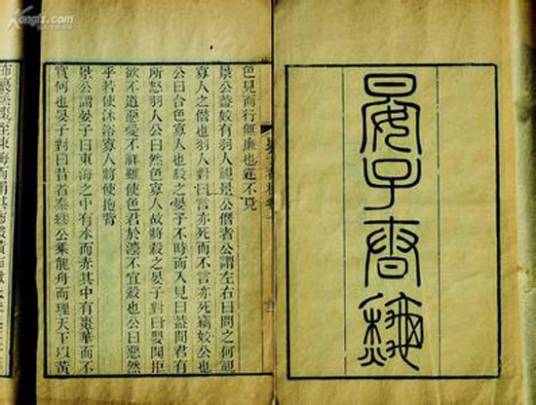 Kongfz.com
晏子春秋
色見而行無廉也迺不見
景公蓋姣有羽人視景公僭者公謂左右曰問之何視
寡人之僭也羽人對曰言亦死而不言亦死竊姣公也
公曰合色寡人也殺之晏子不時而入見曰蓋聞君有
所怒羽人公曰然色寡人故將殺之晏子對曰嬰聞拒
欲不道惡愛不祥雖使色君於法不宜殺也公曰惡然
乎若使沐浴寡人將使抱背
景公謂晏子曰東海之中有水而赤其中有棗華而不
實何也晏子對曰昔者秦繆公乘龍舟而理天下以黃
布裹烝棗至東海而捐其布